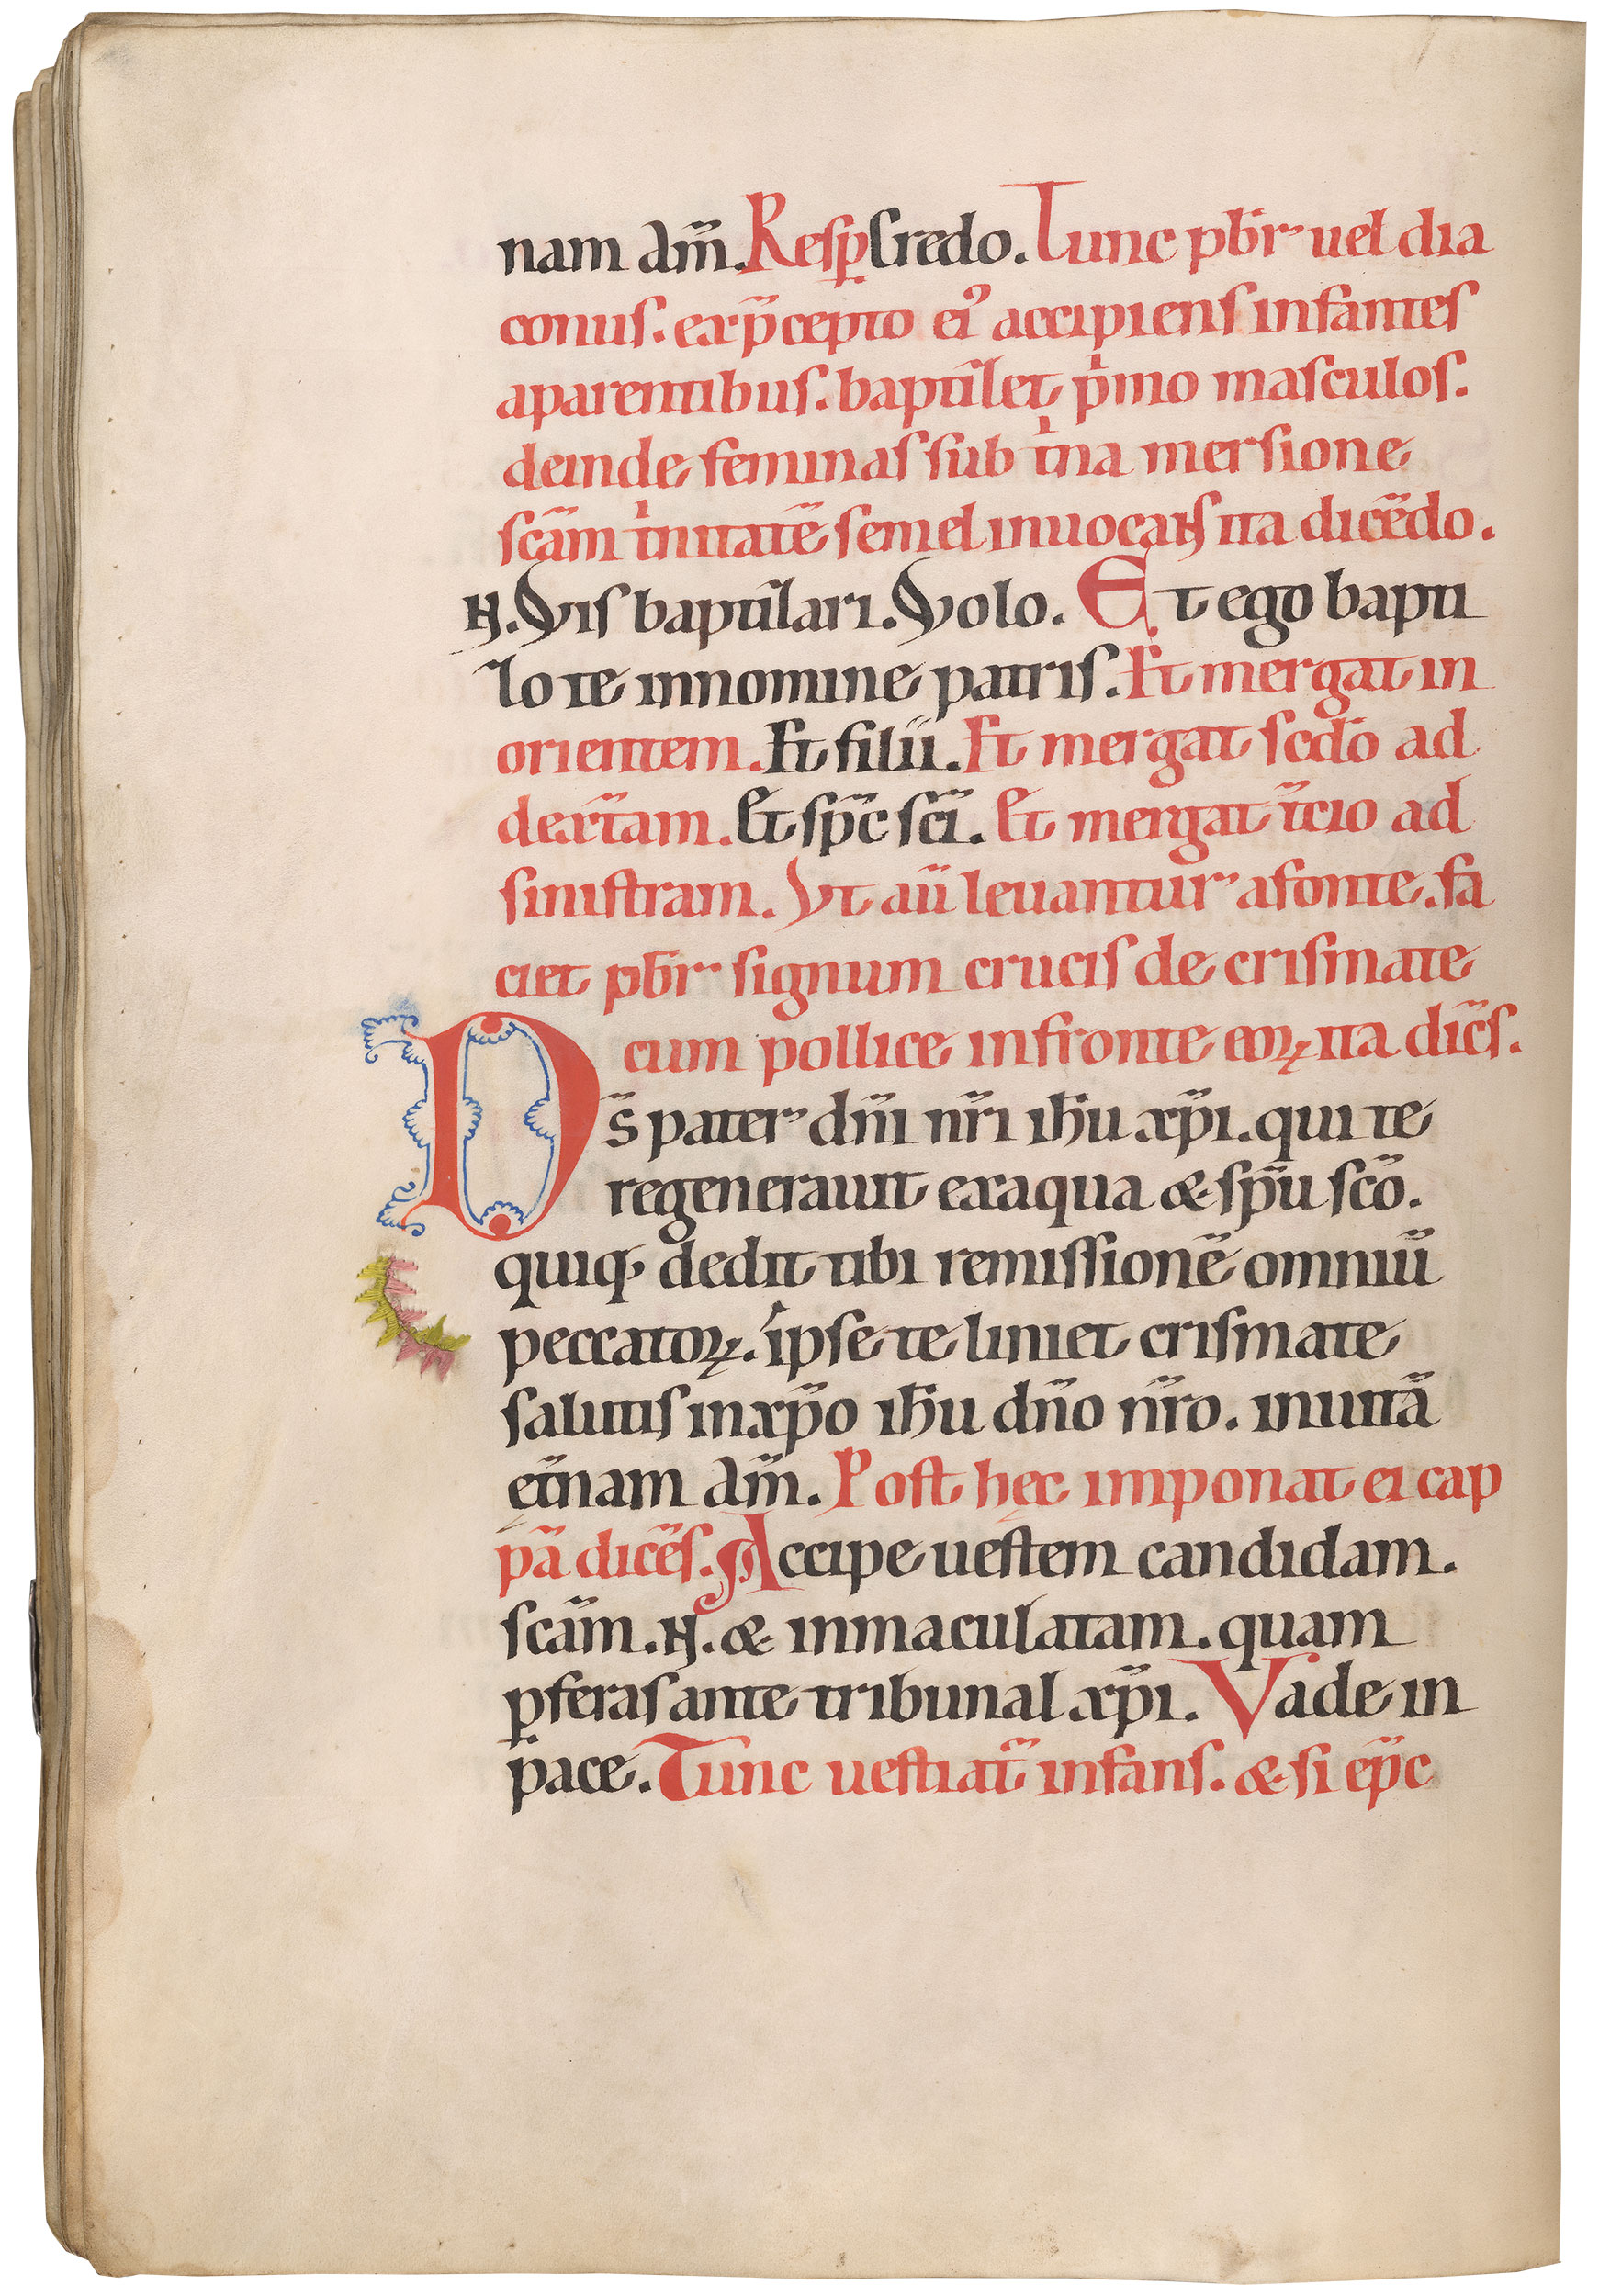 nam am̅. Resp̱ Credo. Tunc pb̅r uel dia
conus. exp̅cepto ei᾽ accipiens infantes
aparentibus. baptizet pⁱmo masculos.
deinde feminas sub tⁱna mersione
sc̅am tⁱnitate̅ semel inuocans ita dice̅do.
N. Vis baptizari. Volo. Et ego bapti
zo te innomine patris. Et mergat in
orientem. Et filii. Et mergat sc̅do ad
dext̅am. Et sp̅c sc̅i. Et mergat t̅cio ad
sinistram. Vt au̅ leuantur afonte. fa
ciet pb̅r signum crucis de crismate
cum pollice infronte eoꝝ ita dic̅s.
D s̅ pater dn̅i nr̅i ih̅u xp̅i. qui te
regenerauit exaqua & sp̅u sc̅o.
quiq; dedit tibi remissione̅ omniu̅
peccatoꝝ. ipse te liniet crismate
salutis inxp̅o ih̅u dn̅o nr̅o. inuita̅
ęt̅nam am̅. Post hęc imponat ei cap
pa̅ dice̅s. Accipe uestem candidam.
sc̅am. N. & inmaculatam. quam
ꝑferas ante tribunal xp̅i. Vade in
pace. Tunc uestiat̅ infans. & si ep̅c